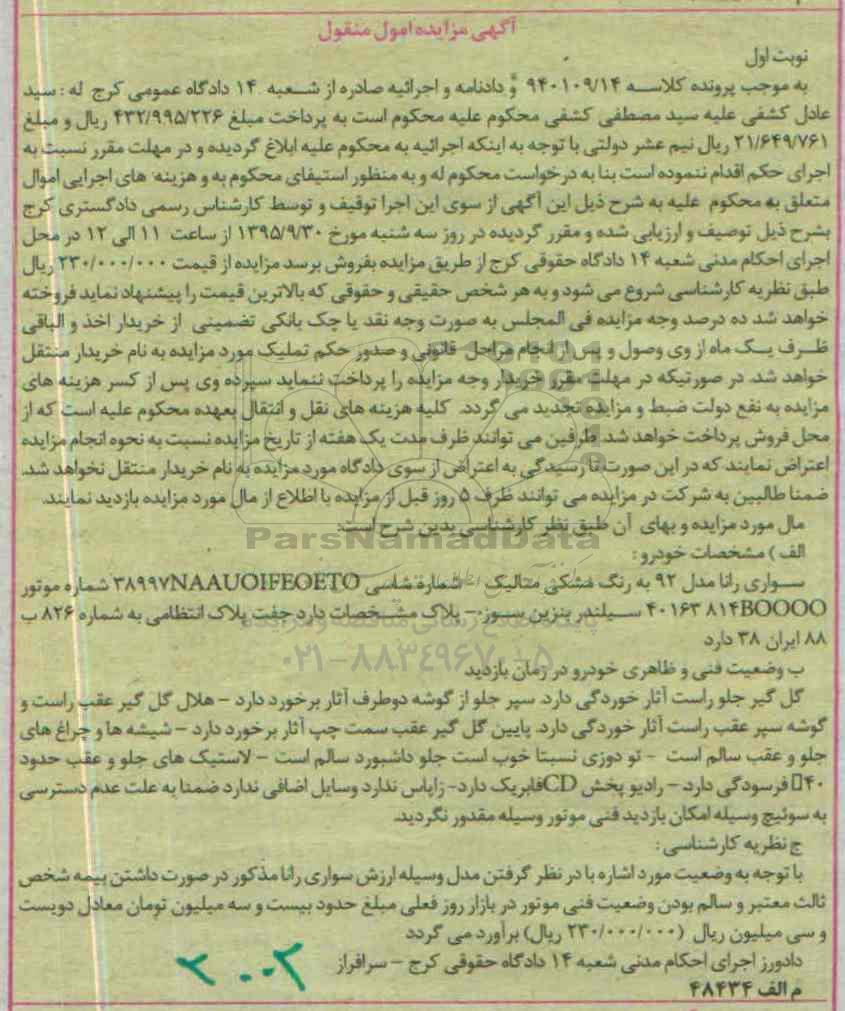 آگهی مزایده اموال منقول
نوبت اول
به موجب پرونده کلاسه ۹۴۰۱۰۹/۱۴ و دادنامه و اجرائیه صادره از شعبه ۱۴ دادگاه عمومی کرج له : سید
عادل کشفی علیه سید مصطفی کشفی محکوم علیه محکوم است به پرداخت مبلغ ۴۳۲/۹۹۵/۲۲۶ ریال و مبلغ
۲۱/۶۴۹/۷۶۱ ریال نیم عشر دولتی با توجه به اینکه اجرائیه به محکوم علیه ابلاغ گردیده و در مهلت مقرر نسبت به
اجرای حکم اقدام ننموده است بنا به درخواست محکوم له و به منظور استیفای محکوم به و هزینه های اجرایی اموال
متعلق به محکوم علیه به شرح ذیل این آگهی از سوی این اجرا توقیف و توسط کارشناس رسمی دادگستری کرج
بشرح ذیل توصیف و ارزیابی شده و مقرر گردیده در روز سه شنبه مورخ ۱۳۹۵/۹/۳۰ از ساعت ۱۱ الی ۱۲ در محل
اجرای احکام مدنی شعبه ۱۴ دادگاه حقوقی کرج از طریق مزایده بفروش برسد مزایده از قیمت ۲۳۰/۰۰۰/۰۰۰ ریال
طبق نظریه کارشناسی شروع می شود و به هر شخص حقیقی و حقوقی که بالاترین قیمت را پیشنهاد نماید فروخته
خواهد شد ده درصد وجه مزایده فی المجلس به صورت وجه نقد یا چک بانکی تضمینی از خریدار اخذ و الباقی
ظرف یک ماه از وی وصول و پس از انجام مراحل قانونی و صدور حکم تملیک مورد مزایده به نام خریدار منتقل
خواهد شد. در صورتیکه در مهلت مقرر خریدار وجه مزایده را پرداخت ننماید سپرده وی پس از کسر هزینه های
مزایده به نفع دولت ضبط و مزایده تجدید می گردد. کلیه هزینه های نقل و انتقال بعهده محکوم علیه است که از
محل فروش پرداخت خواهد شد. طرفین می توانند ظرف مدت یک هفته از تاریخ مزایده نسبت به نحوه انجام مزایده
اعتراض نمایند که در این صورت تا رسیدگی به اعتراض از سوی دادگاه مورد مزایده به نام خریدار منتقل نخواهد شد.
ضمنا طالبین به شرکت در مزایده می توانند ظرف ۵ روز قبل از مزایده با اطلاع از مال مورد مزایده بازدید نمایند.
مال مورد مزایده و بهای آن طبق نظر کارشناسی بدین شرح است:
ParsNamadData
الف ) مشخصات خودرو :
سواری رانا مدل ۹۲ به رنگ مشکی متالیک - شماره شاسی ۳۸۹۹۷NAAUOIFEOETO شماره موتور
۴۰۱۶۳ ۸۱۴BOOOO سیلندر بنزین سوز - پلاک مشخصات دارد جفت پلاک انتظامی به شماره ۸۲۶ ب
۸۸ ایران ۳۸ دارد
۰۲۱-۸۸۳۴۹۶۷۰-۱۵
ب وضعیت فنی و ظاهری خودرو در زمان بازدید
گل گیر جلو راست آثار خوردگی دارد. سپر جلو از گوشه دوطرف آثار برخورد دارد - هلال گل گیر عقب راست و
گوشه سپر عقب راست آثار خوردگی دارد. پایین گل گیر عقب سمت چپ آثار برخورد دارد - شیشه ها و چراغ های
جلو و عقب سالم است - تو دوزی نسبتا خوب است جلو داشبورد سالم است - لاستیک های جلو و عقب حدود
۴۰ فرسودگی دارد - رادیو پخش CD فابریک دارد- زاپاس ندارد وسایل اضافی ندارد ضمنا به علت عدم دسترسی
به سوئیچ وسیله امکان بازدید فنی موتور وسیله مقدور نگردید.
ج نظریه کارشناسی :
با توجه به وضعیت مورد اشاره با در نظر گرفتن مدل وسیله ارزش سواری رانا مذکور در صورت داشتن بیمه شخص
ثالث معتبر و سالم بودن وضعیت فنی موتور در بازار روز فعلی مبلغ حدود بیست و سه میلیون تومان معادل دویست
و سی میلیون ریال (۲۳۰/۰۰۰/۰۰۰ ریال) برآورد می گردد
دادورز اجرای احکام مدنی شعبه ۱۴ دادگاه حقوقی کرج - سرافراز
م الف ۴۸۴۳۴